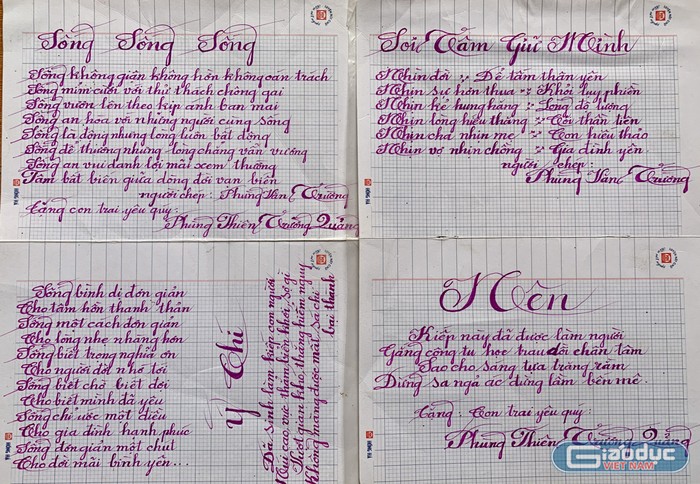 Sống Sống Sống
Sống không giận không hờn không oán trách
Sống mỉm cười với thử thách chông gai
Sống vươn lên theo kịp ánh ban mai
Sống an hòa với những người cùng sống
Sống là động nhưng lòng luôn bất động
Sống để thương nhưng lòng chẳng vấn vương
Sống an vui danh lợi mãi xem thường
Tâm bất biến giữa dòng đời vạn biến
người chép: Phùng Văn Trường
Tặng con trai yêu quý:
Phùng Thiên Trường Quảng
Soi Tâm Giữ Mình
Nhìn đời : Để tâm thân yên
Nhìn sự hơn thua : Khỏi lụy phiền
Nhìn kẻ hung hăng : Lòng độ lượng
Nhìn lòng hiếu thắng : Cõi thần tiên
Nhìn cha nhìn mẹ : Con hiếu thảo
Nhìn vợ nhìn chồng : Gia đình yên.
người chép:
Phùng Văn Trường
Sống bình dị đơn giản
Cho tâm hồn thanh thản
Sống một cách đơn giản
Cho lòng nhẹ nhàng hơn
Sống biết trọng nghĩa ơn
Cho người đời nhớ tới
Sống biết chờ biết đợi
Cho biết mình đã yêu
Sống chỉ ước một điều
Cho gia đình hạnh phúc
Sống đơn giản một chút
Cho đời mãi bình yên...
Ý Chí
Đã sinh làm kiếp con người
Núi cao vực thẳm biển khơi sợ gì
Thời gian khó thăng hiểm nguy
Không quảng được mất sá chi bại thành
Nên
Kiếp này đã được làm người
Gắng công tu học trau dồi chân tâm
Sao cho sáng tựa trăng rằm
Đừng sa ngã ác đừng lầm bến mê.
Tặng: Con trai yêu quý:
Phùng Thiên Trường Quảng
Giáo dục
VIỆT NAM